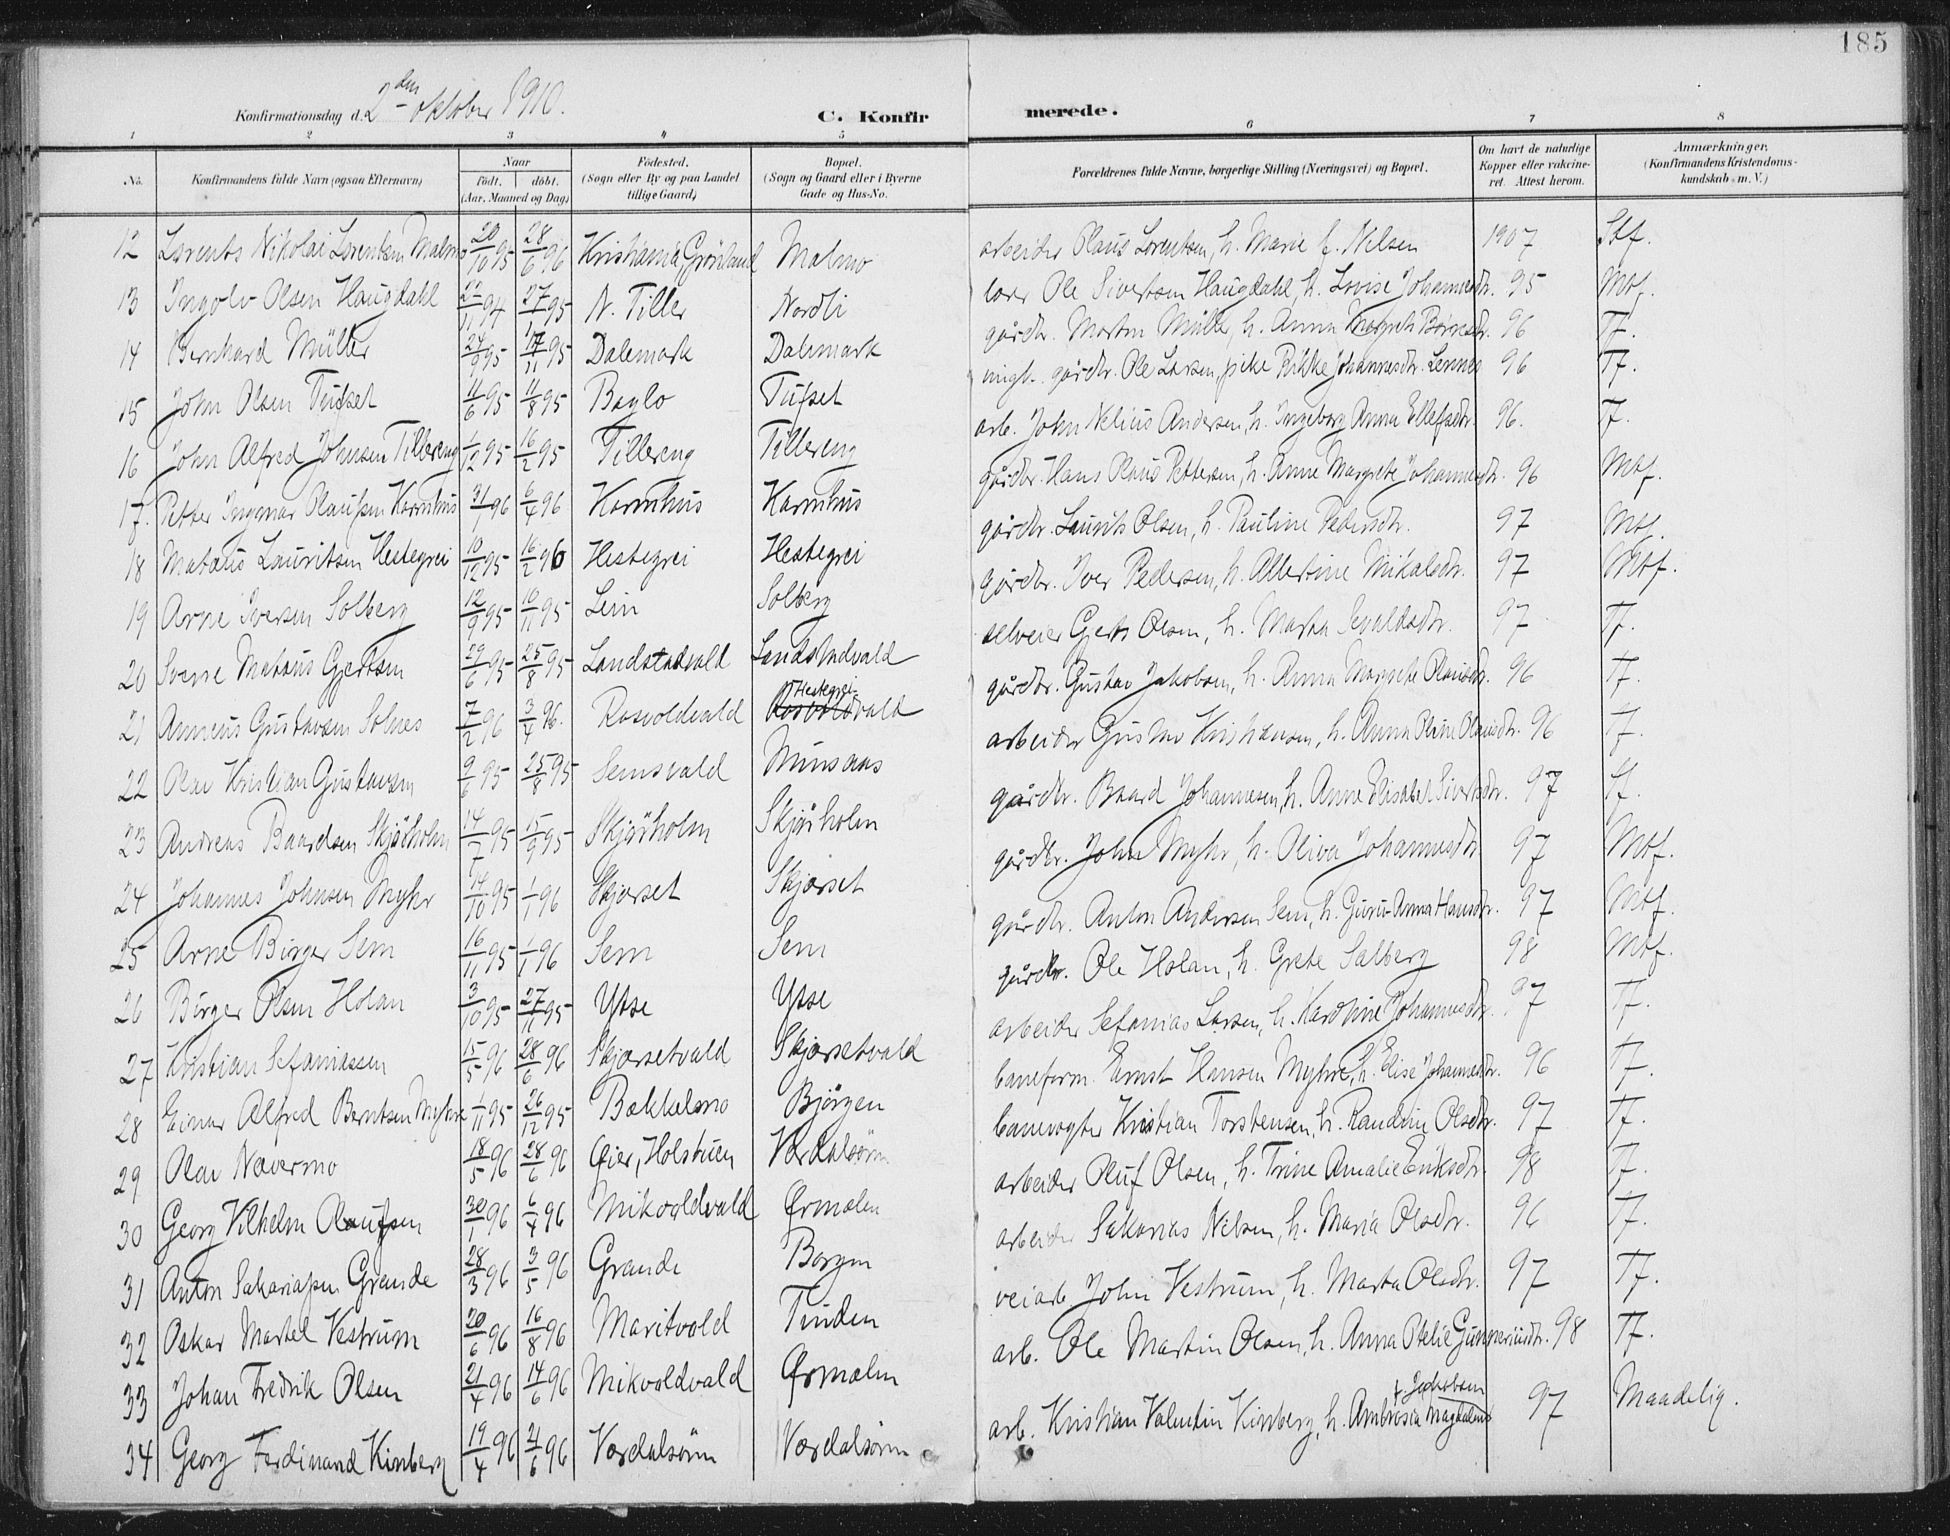 185
Konfirmationsdag d. 2den oktober 1910.
C. Konfir merede.
1 2 3 4 5 6 7 8
No. Konfirmandens fulde Navn (ogsaa Efternavn) Naar født. døbt. (Aar, Maaned og Dag) Fødested. (Sogn eller By og paa Landet tillige Gaard) Bopæl. (Sogn og Gaard eller i Byerne Gade og Hus-No. Forældrenes fulde Navne, borgerlige Stilling (Næringsvei) og Bopæl. Om havt de naturlige Kopper eller vakcineret. Attest herom. Anmærkninger. (Konfirmandens Kristendomskundskab m. V.)
12 Lorents Nikolai Lorentsen Malmo 20/10 95 28/6 96 Kristiania, Grønland Malmo arbeider Olaus Lorentsen, h. Marie f. Nilsen 1907 Stf.
13 Ingolv Olsen Haugdahl 22/11 94 27/1 95 N. Tiller Nordli lærer Ole Sivertsen Haugdahl, h. Lovise Johannesdtr. 95 Mtf.
14 Bernhard Müller 24/9 95 17/11 95 Dalemark Dalemark gårdbr. Morten Müller, h. Anna Margrete 96 Tf.
15 John Olsen Tufset 11/6 95 11/8 95 Baglo Tufset ungk. gårdbr. Ole Larsen, pike Rikke Johannesdtr. Lennes 96 Tf.
16 John Alfred Johnsen Tillereng 1/12 95 16/2 95 Tillereng Tillereng arb. John Nelius Andersen, h. Ingeborg Anna Ellefsdtr. 96. T.
17. Petter Ingmar Olaussen Karmhus 31/1 96 6/4 96 Karmhus Karmhus gårdbr. Hans Olaus Pettersen, h. Anne Margrete Johannesdtr. 96 Mtf.
18 Matæus Lauritsen Hestegrei 10/12 95 16/2 96 Hestegrei Hestegrei gårdbr. Laurits Olsen, h. Pauline Pedersdtr. 97 Mtf.
19 Arne Iversen Solberg 12/9 95 10/11 95 Lein Solberg gårdbr. Iver Pedersen, h. Albertine Mikalsdtr. 97 Mtf.
20 Sverre Matæus Gjertsen 29/6 95 25/8 95 Landstadvald Landstadvald selveier Gjert Olsen, h. Marta Sevaldsdtr. 97 Tf.
21 Anneus Gustavsen Solnes 7/2 96 3/4 96. Rosvoldvald Hestegrei vald gårdbr. Gustav Jakobsen, h. Anna Margrete Olausdtr. 96 Tf.
22 Olav Kristian Gustavsen 9/6 95 25/8 95 Semsvald Minsaas arbeider Gustav Kristiansen, h. Anna Oline Olausdtr. 96 T.
23 Andreas Baardsen Skjørholm 14/7 95 15/9 95 Skjørholm Skjørholm gårdbr. Baard Johannesen, h. Anne Elisabet Sivertsdtr. 97 Tf.
24 Johannes Johnsen Myhr 14/10 95 1/1 96 Skjørset Skjørset gårdbr. John Myhr, h. Oliva Johannesdtr. 97 Mtf.
25 Arne Birger Sem 16/11 95 1/1 96 Sem Sem gårdbr. Anton Andersen Sem, h. Guru Anna Hansdtr. 97 Mtf.
26 Birger Olsen Holan 3/10 95 27/11 95 Ytse Ytse gårdbr. Ole Holan, h. Grete Salberg 98 Mtf.
27 Kristian Sefaniassen 15/5 96 28/6 96 Skjørsetvald Skjørsetvald arbeider Sefanias Larsen, h. Karoline Johannesdtr. 97 Tf.
28 Einar Alfred Berntsen Myhre 1/11 95 26/12 95 Bakkelmo Bjørgen baneform. Ernst Hansen Myhre, h. Elise Johannesdtr. 96 Tf.
29 Olav Nævermo 18/5 96 28/6 96 Øier, Holstuen Værdalsøren banevogter Kristian Torstensen, h. Randine Olsdtr. 97 Tf.
30 Georg Vilhelm Olaufsen 30/1 96 6/4 96 Mikvoldvald Ørmælen arbeider Oluf Olsen, h. Trine Amalie Eriksdtr. 98 Tf.
31 Anton Sakariassen Grande 28/3 96 3/5 96 Grande Borgen arbeider Sakarias Nilsen, h. Maria Olsdtr. 96 Tf.
32 Oskar Martel Vestrum 20/6 96 16/8 96 Maritvold Tinden veiarb John Vestrum, h. Marta Olsdtr. 97 Tf.
33 Johan Fredrik Olsen 21/4 96 14/6 96 Mikvoldvald Ørmælen arb. Ole Martin Olsen, h. Anna Otelie Gunneriusdtr. 98 Tf.
34 Georg Ferdinand Kinberg 19/4 96 21/6 96 Værdalsøren Værdalsøren arb. Kristian Valentin Kinberg, h. Ambrosia Magdalene f. Jakobsen 97 Maadelig.